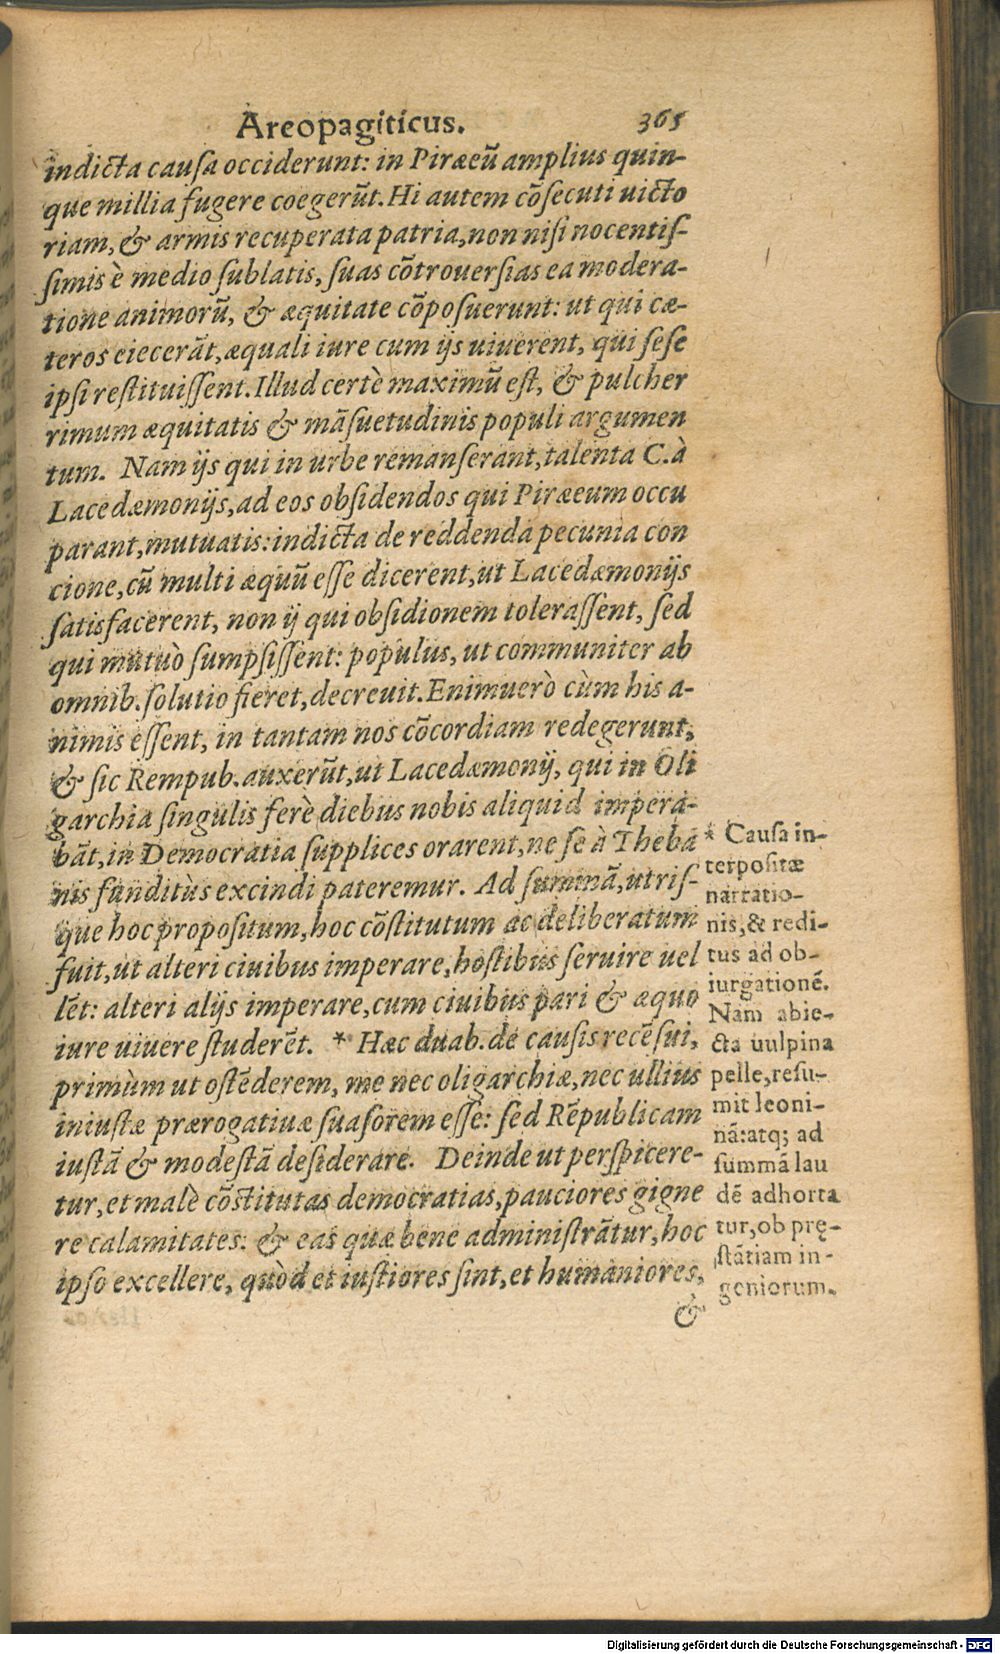 Areopagiticus. 365
indicta causa occiderunt: in Piræeũ amplius quin-
que millia fugere coegerũt. Hi autem cõsecuti uicto
riam, & armis recuperata patria, non nisi nocentis-
simis è medio sublatis, suas cõtrouersias ea modera-
tione animorũ, & æquitate cõposuerunt: ut qui cæ-
teros eiecerãt, æquali iure cum ijs uiuerent, qui sese
ipsi restituissent. Illud certè maximũ est, & pulcher
rimum æquitatis & mãsuetudinis populi argumen
tum. Nam ijs qui in urbe remanserant, talenta C. à
Lacedæmonijs, ad eos obsidendos qui Piræeum occu
parant, mutuatis: indicta de reddenda pecunia con
cione, cũ multi æquũ esse dicerent, ut Lacedæmonijs
satisfacerent, non ij qui obsidionem tolerassent, sed
qui mutuò sumpsissent: populus, ut communiter ab
omnib. solutio fieret, decreuit. Enimuerò cùm his a-
nimis essent, in tantam nos cõcordiam redegerunt,
& sic Rempub. auxerũt, ut Lacedæmonij, qui in Oli
garchia singulis ferè diebus nobis aliquid impera-
bãt, in Democratia supplices orarent, ne se à Theba
nis funditùs excindi pateremur. Ad summã, utris-
que hoc propositum, hoc cõstitutum ac deliberatum
fuit, ut alteri ciuibus imperare, hostibus seruire uel
lẽt: alteri alijs imperare, cum ciuibus pari & æquo
iure uiuere studerẽt. * Hæc duab. de causis recẽsui,
primùm ut ostẽderem, me nec oligarchiæ, nec ullius
iniustæ prærogatiuæ suasorem esse: sed Rẽpublicam
iustã & modestã desiderare. Deinde ut perspicere-
tur, et malè cõstitutas democratias, pauciores gigne
re calamitates: & eas quæ bene administrãtur, hoc
ipso excellere, quòd et iustiores sint, et humaniores,
&
* Causa in-
terpositæ
narratio-
nis, & redi-
tus ad ob-
iurgationẽ.
Nam abie-
cta uulpina
pelle, resu-
mit leoni-
nã: atq; ad
summã lau
dẽ adhorta
tur, ob prę-
stãtiam in-
geniorum.
Digitalisierung gefördert durch die Deutsche Forschungsgemeinschaft - DFG